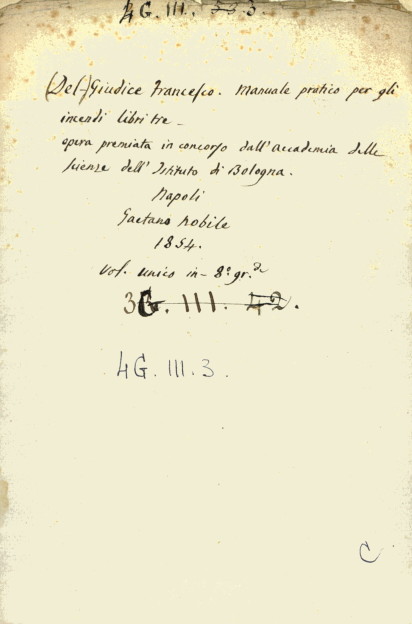 4G. III. 33 3
(Del-)Giudice Francesco. Manuale pratico per gli
incendi libri tre -
opera premiata in concorso dall'Accademia delle
scienze dell'Istituto di Bologna.
Napoli
Gaetano Nobile
1854.
Vol. unico in - 8º gr.de
3G. III. 42.
4G. III. 3.
C